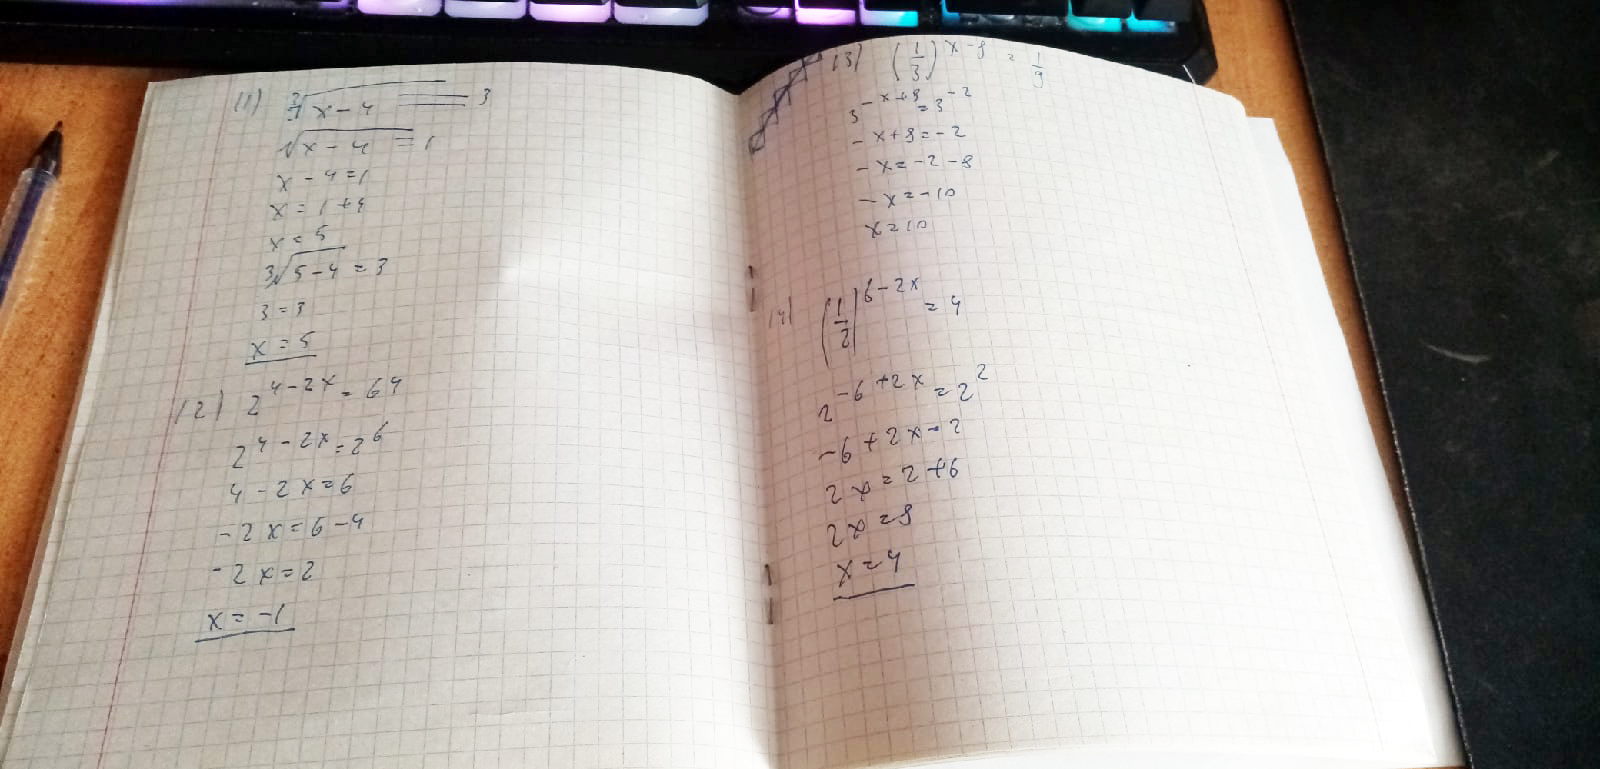 11) ∛x-4 = 3
√x-4 = 1
x-4=1
x=1+4
x=5
3√5-4 = 3
3=3
x=5
12) 2^4-2x = 64
2^4-2x = 2^6
4-2x=6
-2x=6-4
-2x=2
x=-1
13) (1/3)^x-8 = 1/9
3^-x+8 = 3^-2
-x+8=-2
-x=-2-8
-x=-10
x=10
14) (1/2)^6-2x = 4
2^-6+2x = 2^2
-6+2x=2
2x=2+6
2x=8
x=4